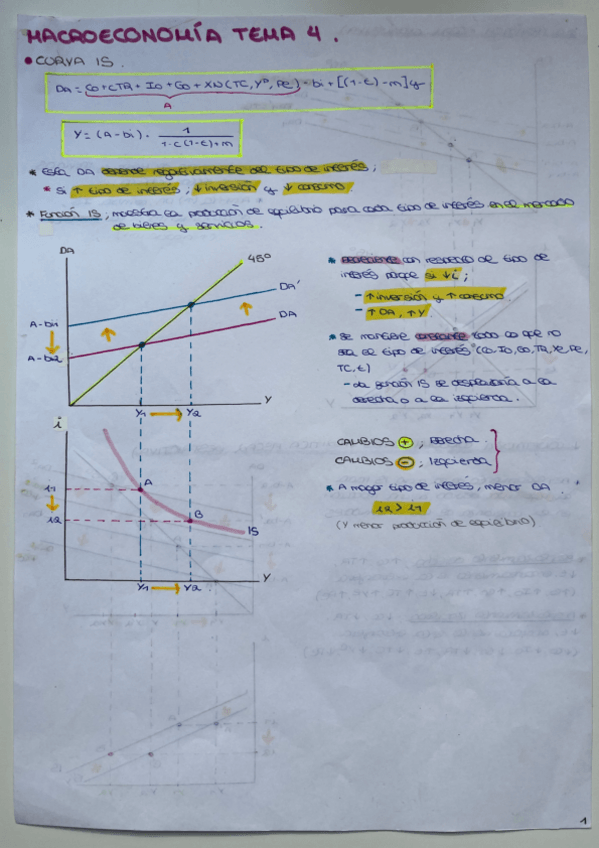 MACROECONOMÍA TEMA 4.
• CURVA IS.
DA = C0 + cTR + I0 + G0 + XN(TC, Y*, Pe) - bi + [(1-t) - m] y
A
Y = (A - bi) · 1 / 1 - c(1-t) + m
* Esta DA depende negativamente del tipo de interés;
* Si ↑ tipo de interés, ↓ inversión y ↓ consumo.
* Función IS; muestra la producción de equilibrio para cada tipo de interés en el mercado
de bienes y servicios.
DA
45º
DA'
DA
A-bi1
A-bi2
Y1 → Y2
Y
* Decreciente con respecto al tipo de
interés porque si ↓i;
- ↑ inversión y ↑ consumo.
- ↑ DA, ↑ Y
* Se mantiene constante todo lo que no
sea el tipo de interés (C0, I0, G0, TR, Y*, Pe,
TC, t)
- La función IS se desplazaría a la
derecha o a la izquierda.
CAMBIOS + ; Derecha.
CAMBIOS - ; Izquierda
* A mayor tipo de interés, menor DA.
i2 > i1
(Y menor producción de equilibrio)
i
i1
i2
A
B
IS
Y1 → Y2
Y
1